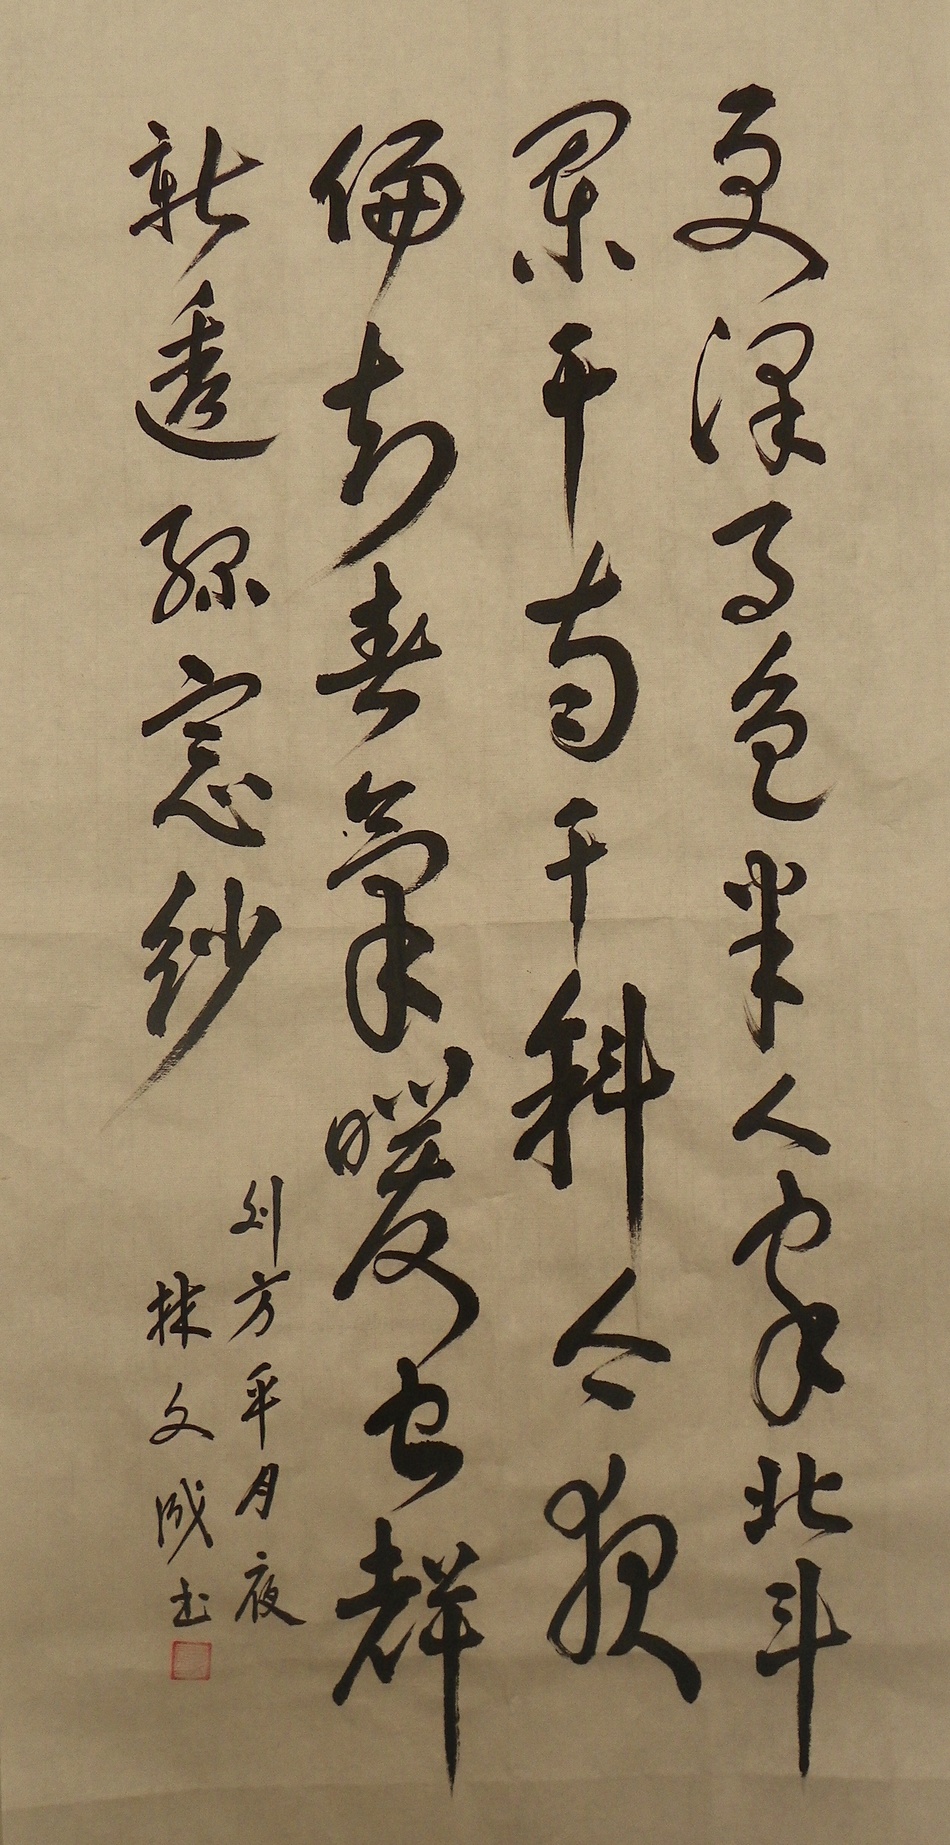 更深月色半人家北斗
闌干南斗斜今夜
偏知春氣暖虫聲
新透綠窓紗
刘方平月夜
林文成书